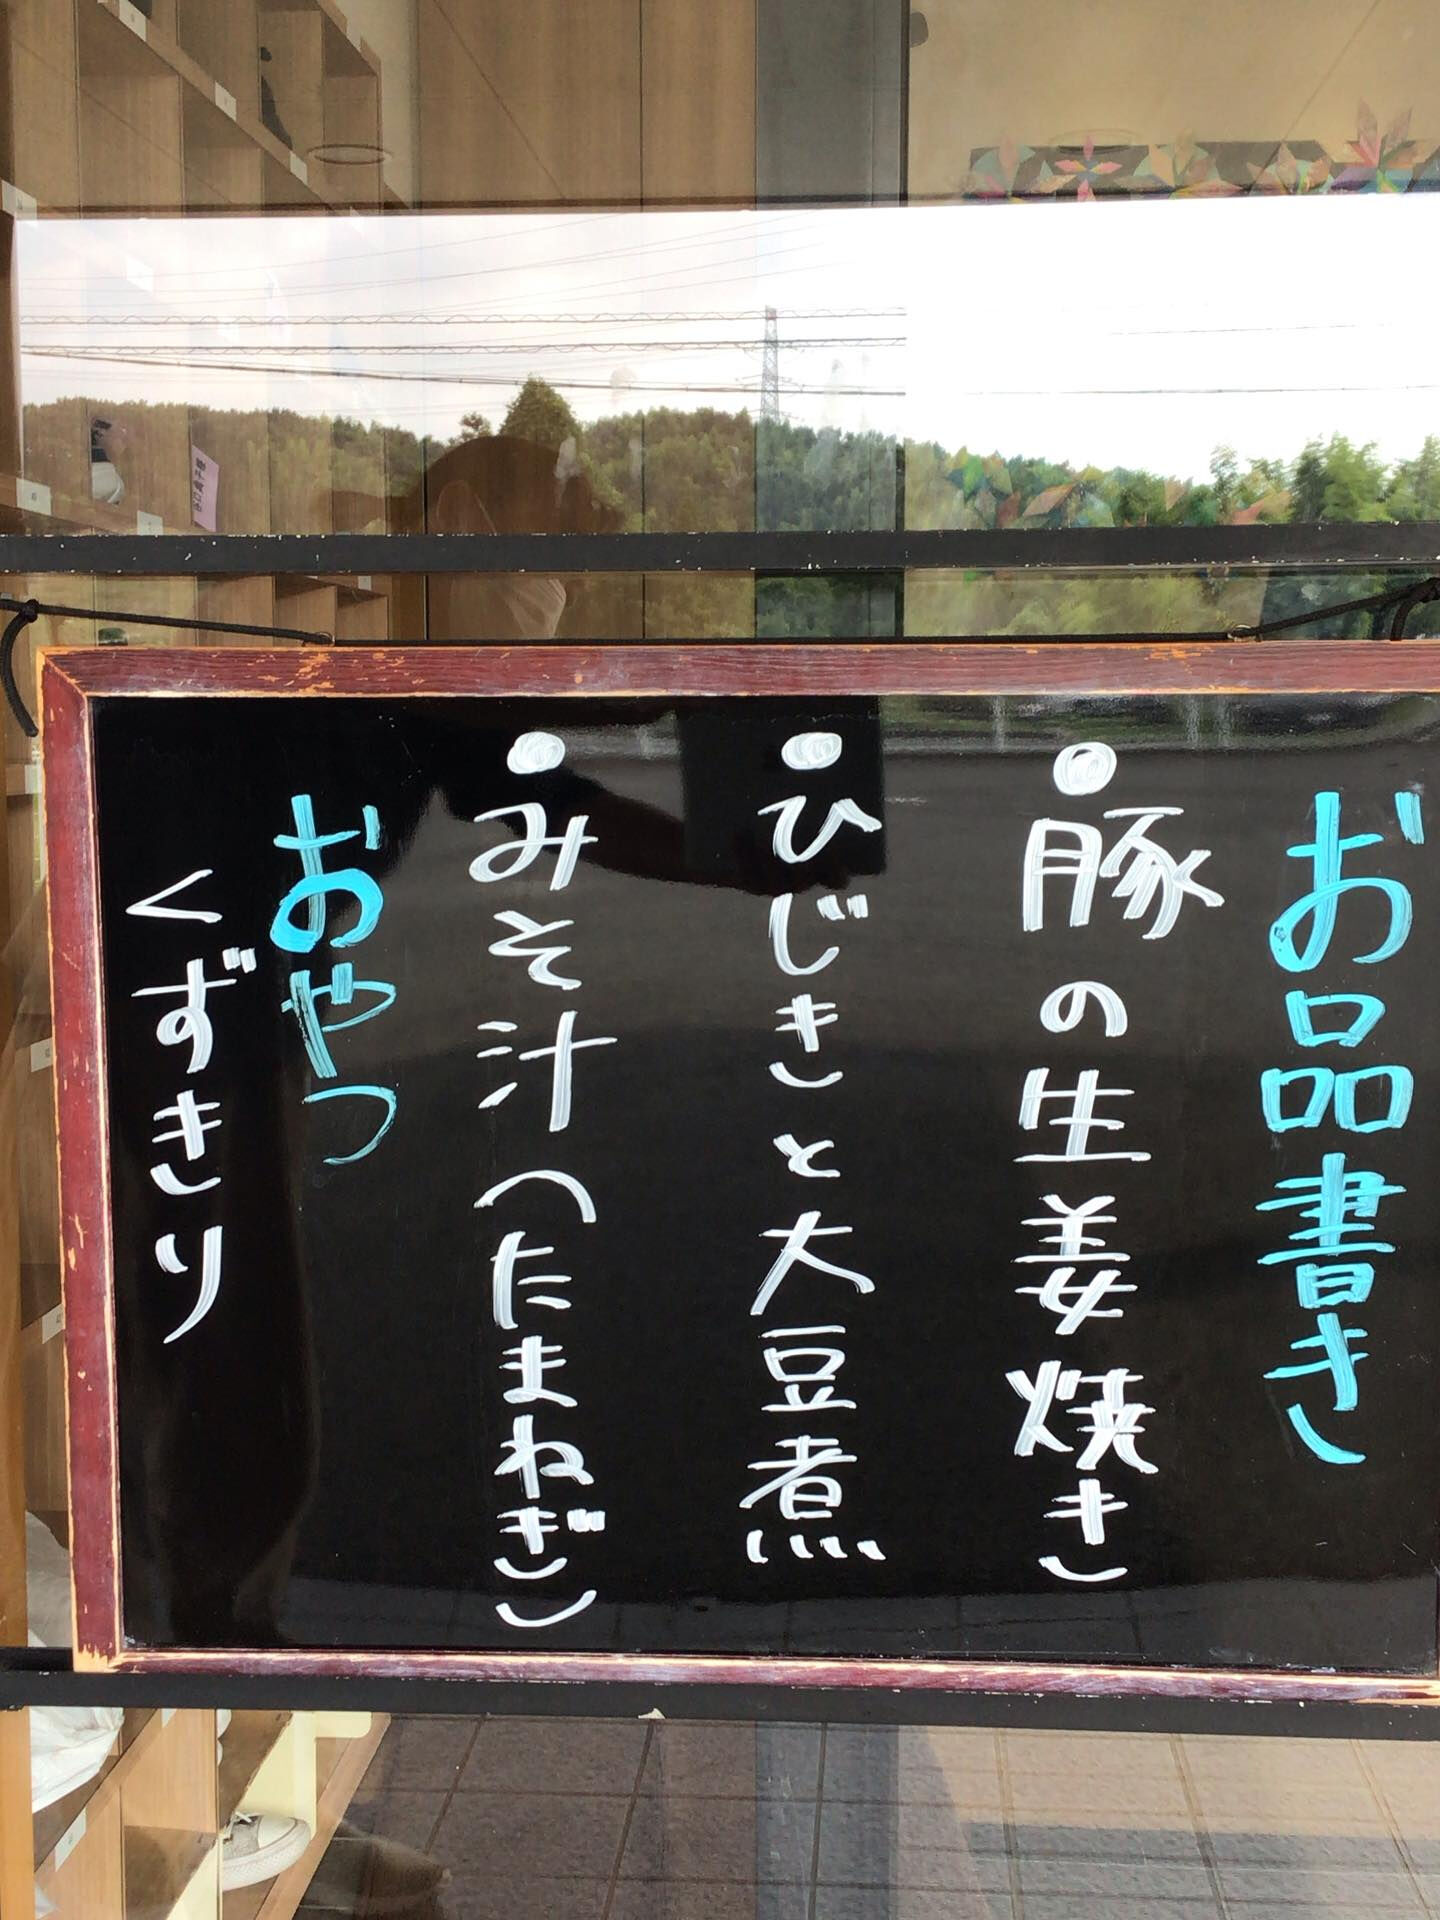 お品書き
●豚の生姜焼き
●ひじきと大豆煮
●みそ汁(たまねぎ)
おやつ
くずきり